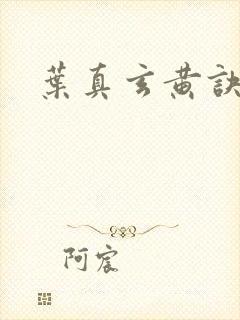 葉真玄黄訣
阿宸